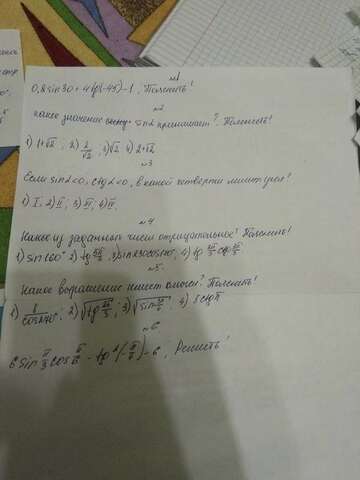 №1
0,8 sin 30 + 4 tg(-45) - 1. Пояснить!
№2
какое значение sin α принимает? Пояснить!
1) 1+√2; 2) 2/√2; 3) √2 4) 2+√2
№3
Если sin α<0, ctg α<0, в какой четверти лежит угол!
1) I; 2) II; 3) III; 4) IV.
№4
Какое из заданных чисел отрицательное? Пояснить!
1) sin 160° 2) tg 3) sin 230 cos 4) tg ctg
№5
Какое выражение имеет смысл? Пояснить!
1) 2) 3) 4) 5 ctg π
№6
6 sin π/3 cos π/6 - tg²(-π/6) - 6, Решить!